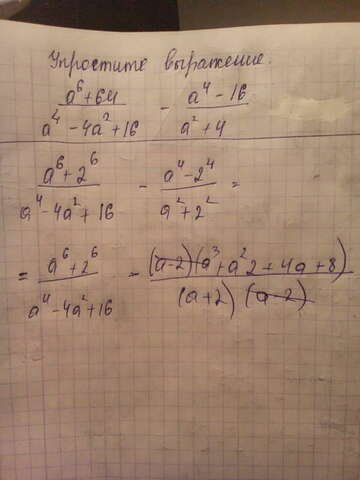 Упростите выражение.
(a⁶+64)/(a⁴-4a²+16) - (a⁴-16)/(a²+4)
(a⁶+2⁶)/(a⁴-4a²+16) - (a⁴-2⁴)/(a²+2²) =
= (a⁶+2⁶)/(a⁴-4a²+16) - ((a-2)(a³+a²2+4a+8))/((a+2)(a-2))